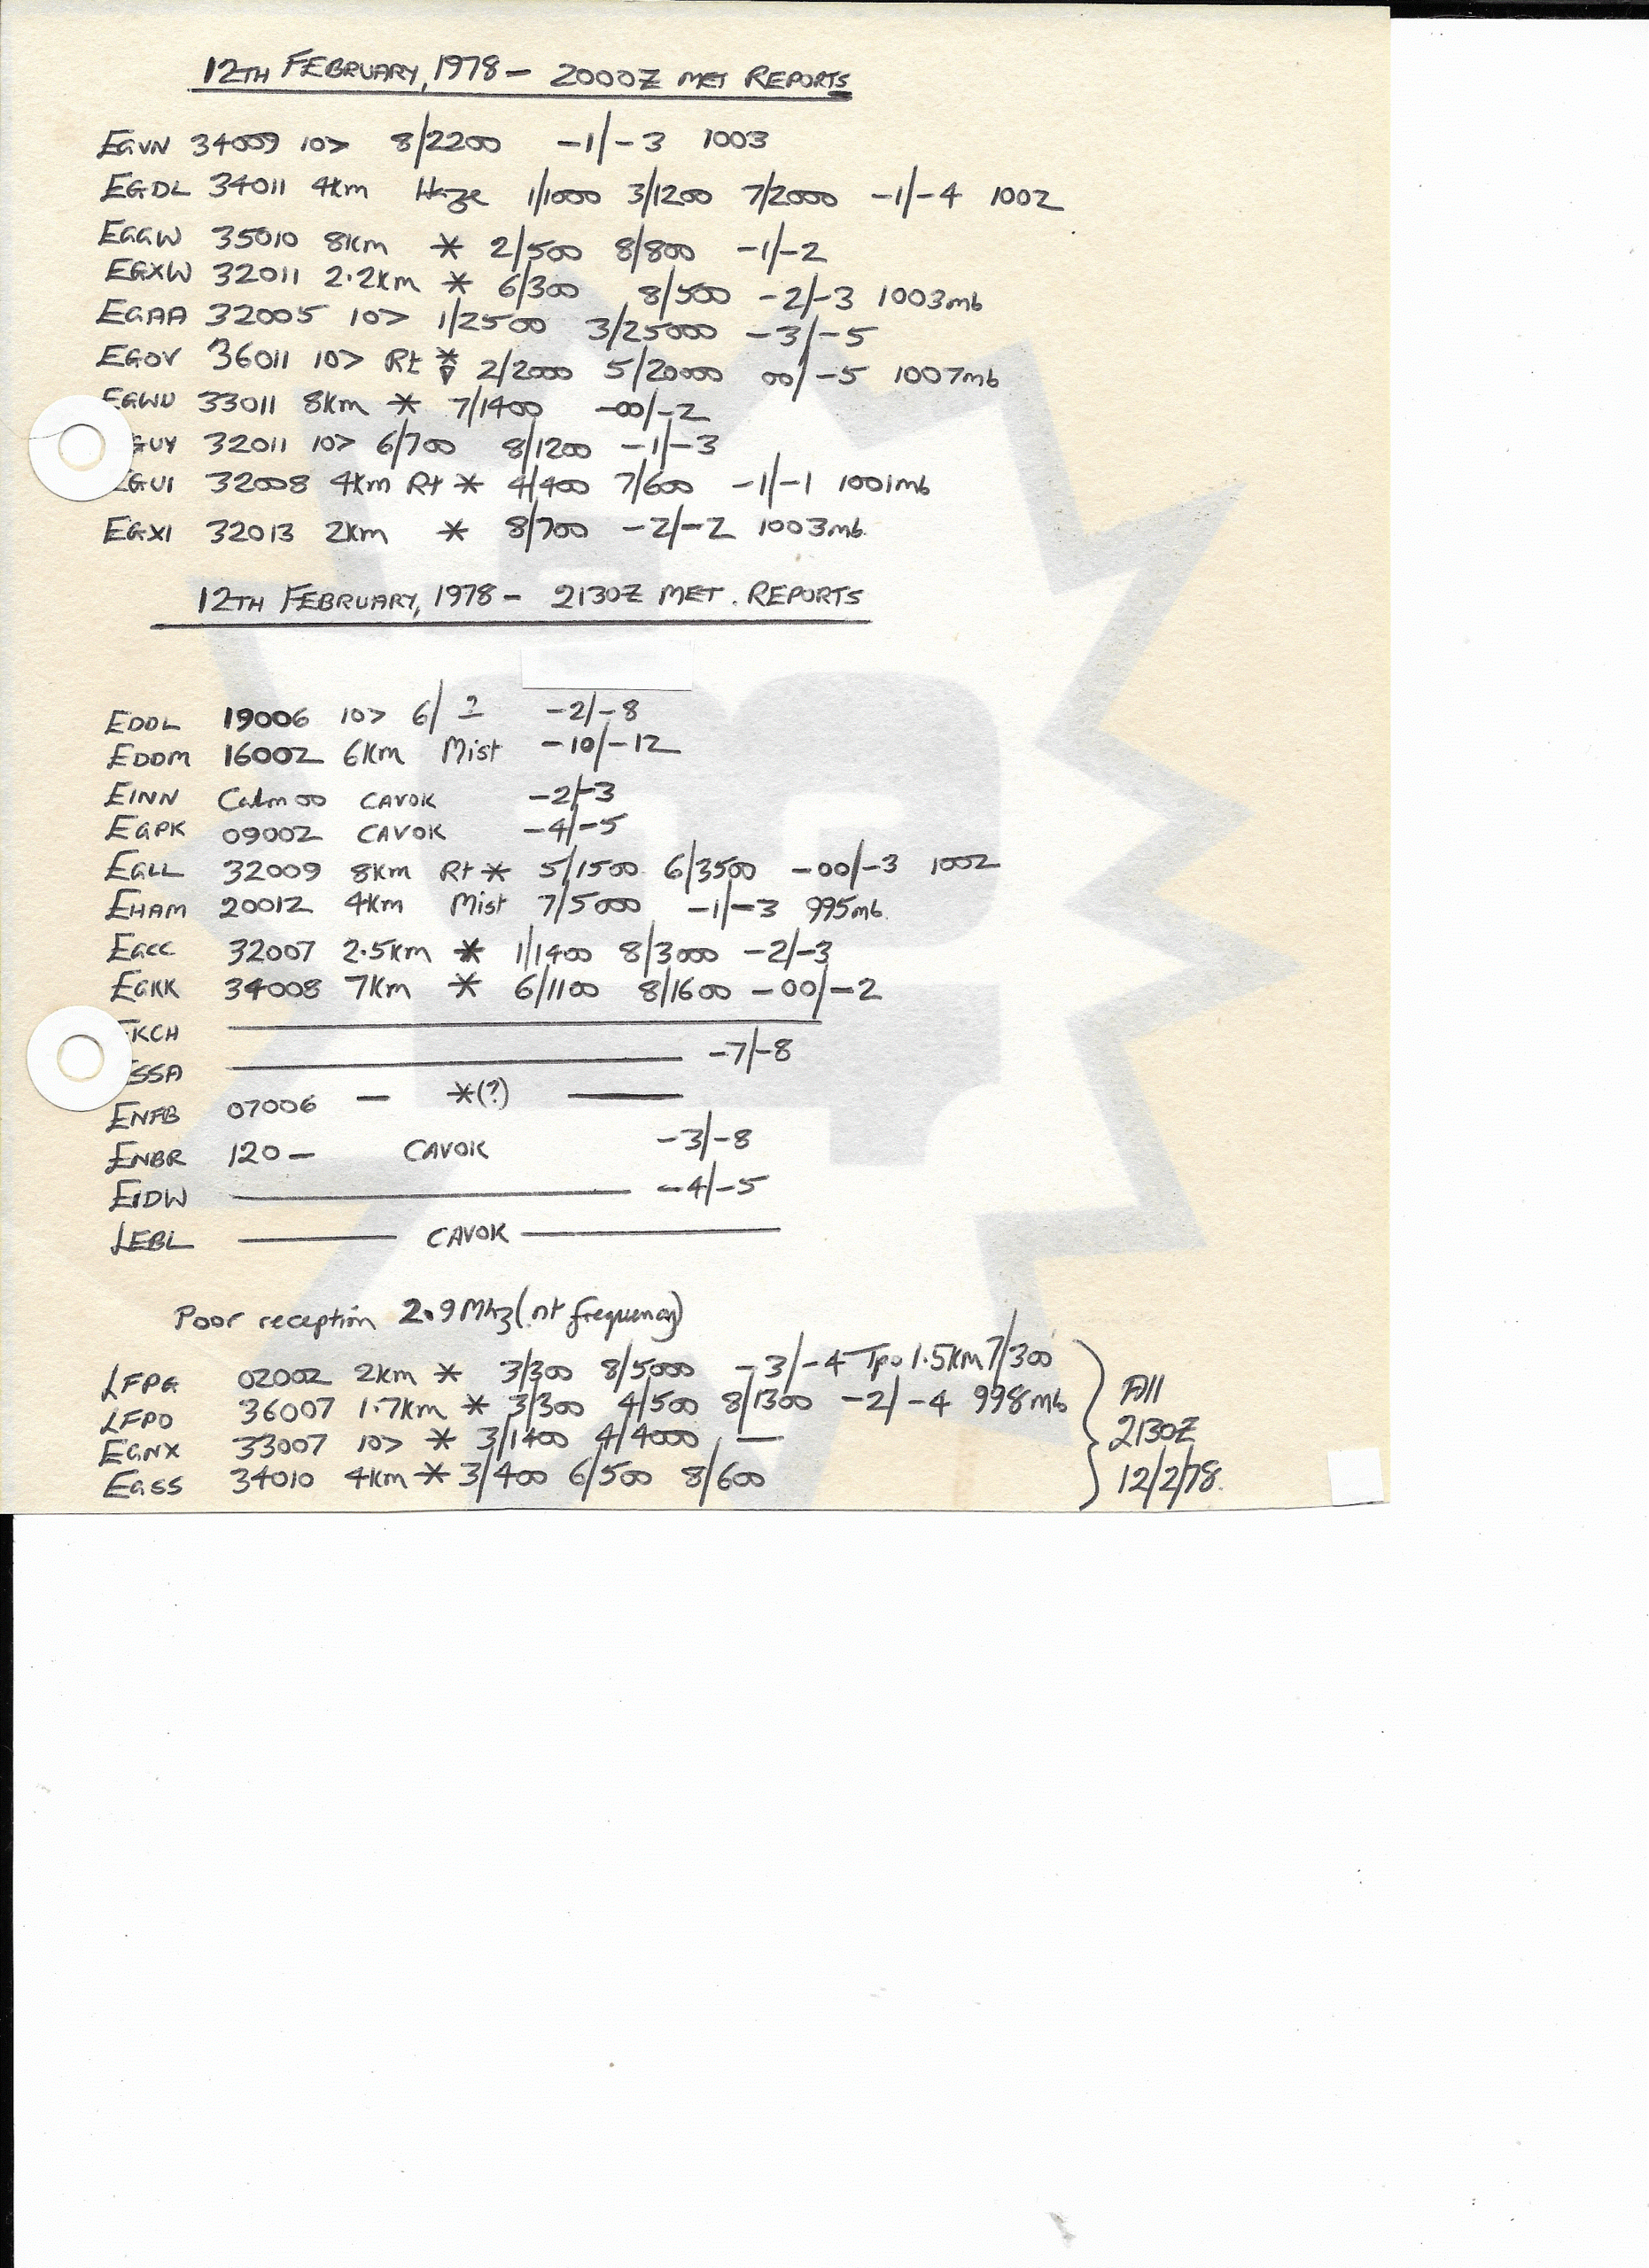 12TH FEBRUARY, 1978 - 2000Z MET REPORTS
EGVN 34009 10> 8/2200 -1/-3 1003
EGDL 34011 4km Haze 1/1000 3/1200 7/2000 -1/-4 1002
EGGW 35010 8km * 2/500 8/800 -1/-2
EGXW 32011 2.2km * 6/300 8/500 -2/-3 1003mb
EGAA 32005 10> 1/2500 3/25000 -3/-5
EGOV 36011 10> Rt * ▽ 2/2000 5/20000 00/-5 1007mb
EGWU 33011 8km * 7/1400 -00/-2
GUY 32011 10> 6/700 8/1200 -1/-3
EGUI 32008 4km Rt * 4/400 7/600 -1/-1 1001mb
EGXI 32013 2km * 8/700 -2/-2 1003mb.
12TH FEBRUARY, 1978 - 2130Z MET. REPORTS
EDDL 19006 10> 6/? -2/-8
EDDM 16002 6km Mist -10/-12
EINN Calm 00 CAVOK -2/-3
EGPK 09002 CAVOK -4/-5
EGLL 32009 8km Rt * 5/1500 6/3500 -00/-3 1002
EHAM 20012 4km Mist 7/5000 -1/-3 995mb.
EGCC 32007 2.5km * 1/1400 8/3000 -2/-3
EGKK 34008 7km * 6/1100 8/1600 -00/-2
EKCH
ESSA -7/-8
ENFB 07006 — *(?) —
ENBR 120 — CAVOK -3/-8
EIDW -4/-5
LEBL — CAVOK —
Poor reception 2.9Mhz (nt frequency)
LFPG 02002 2km * 3/300 8/5000 -3/-4 Tpo 1.5km 7/300
LFPO 36007 1.7km * 3/300 4/500 8/1300 -2/-4 998mb
EGNX 33007 10> * 3/1400 4/4000 —
EGSS 34010 4km * 3/400 6/500 8/600
All
2130Z
12/2/78.